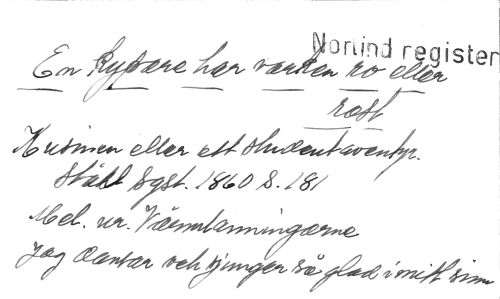 Norlind register
En kypare har varken ro eller
rast
Kusinen eller ett studentäventyr.
Ståhl Sgst. 1860 S. 181
Mel. ur. Värmlänningarne
Jag dansar och sjunger så glad i mitt sinn